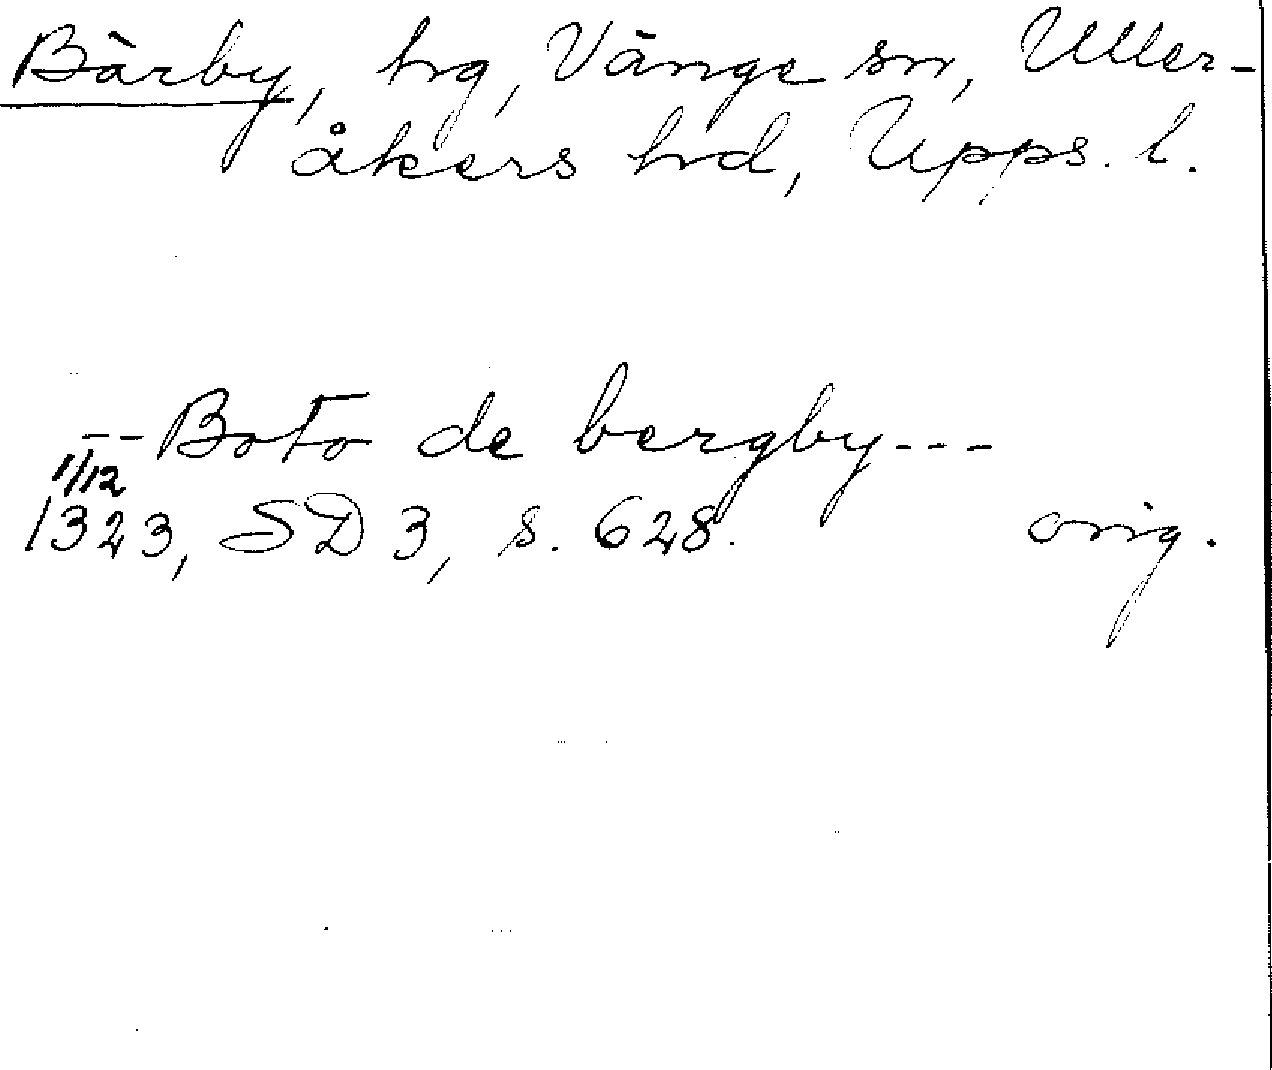 Bärby, hg, Vänge sn, Uller-
åkers hd, Upps. l.
--Boto de bergby---
1/12
1323, SD 3, s. 628. orig.